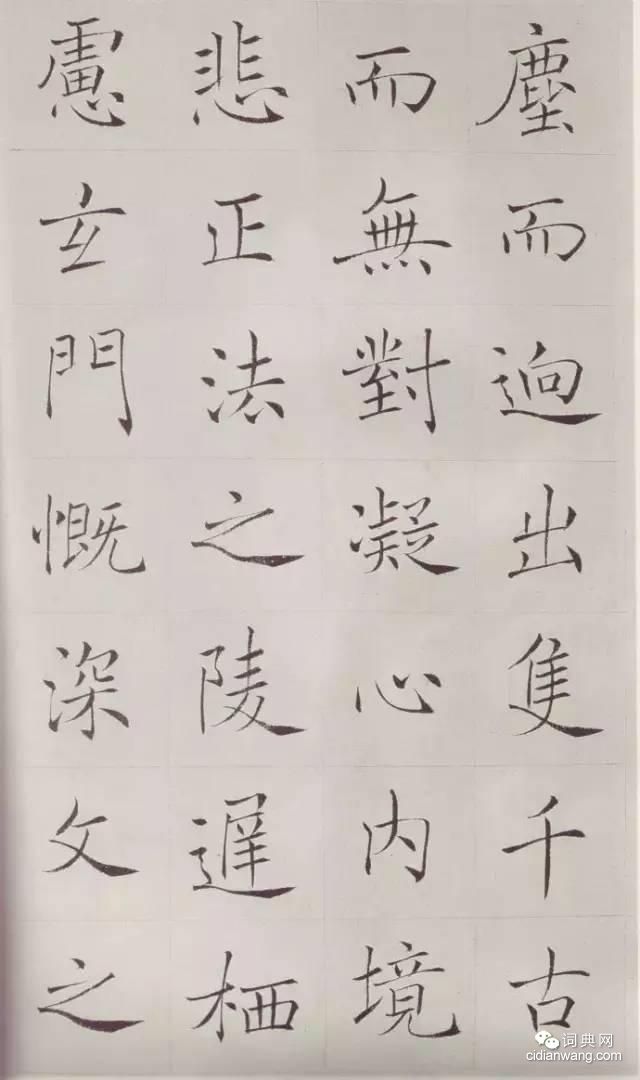 塵而逈出隻千古
而無對凝心內境
悲正法之陵遲栖
慮玄門慨深文之
词典网
cidianwang.com